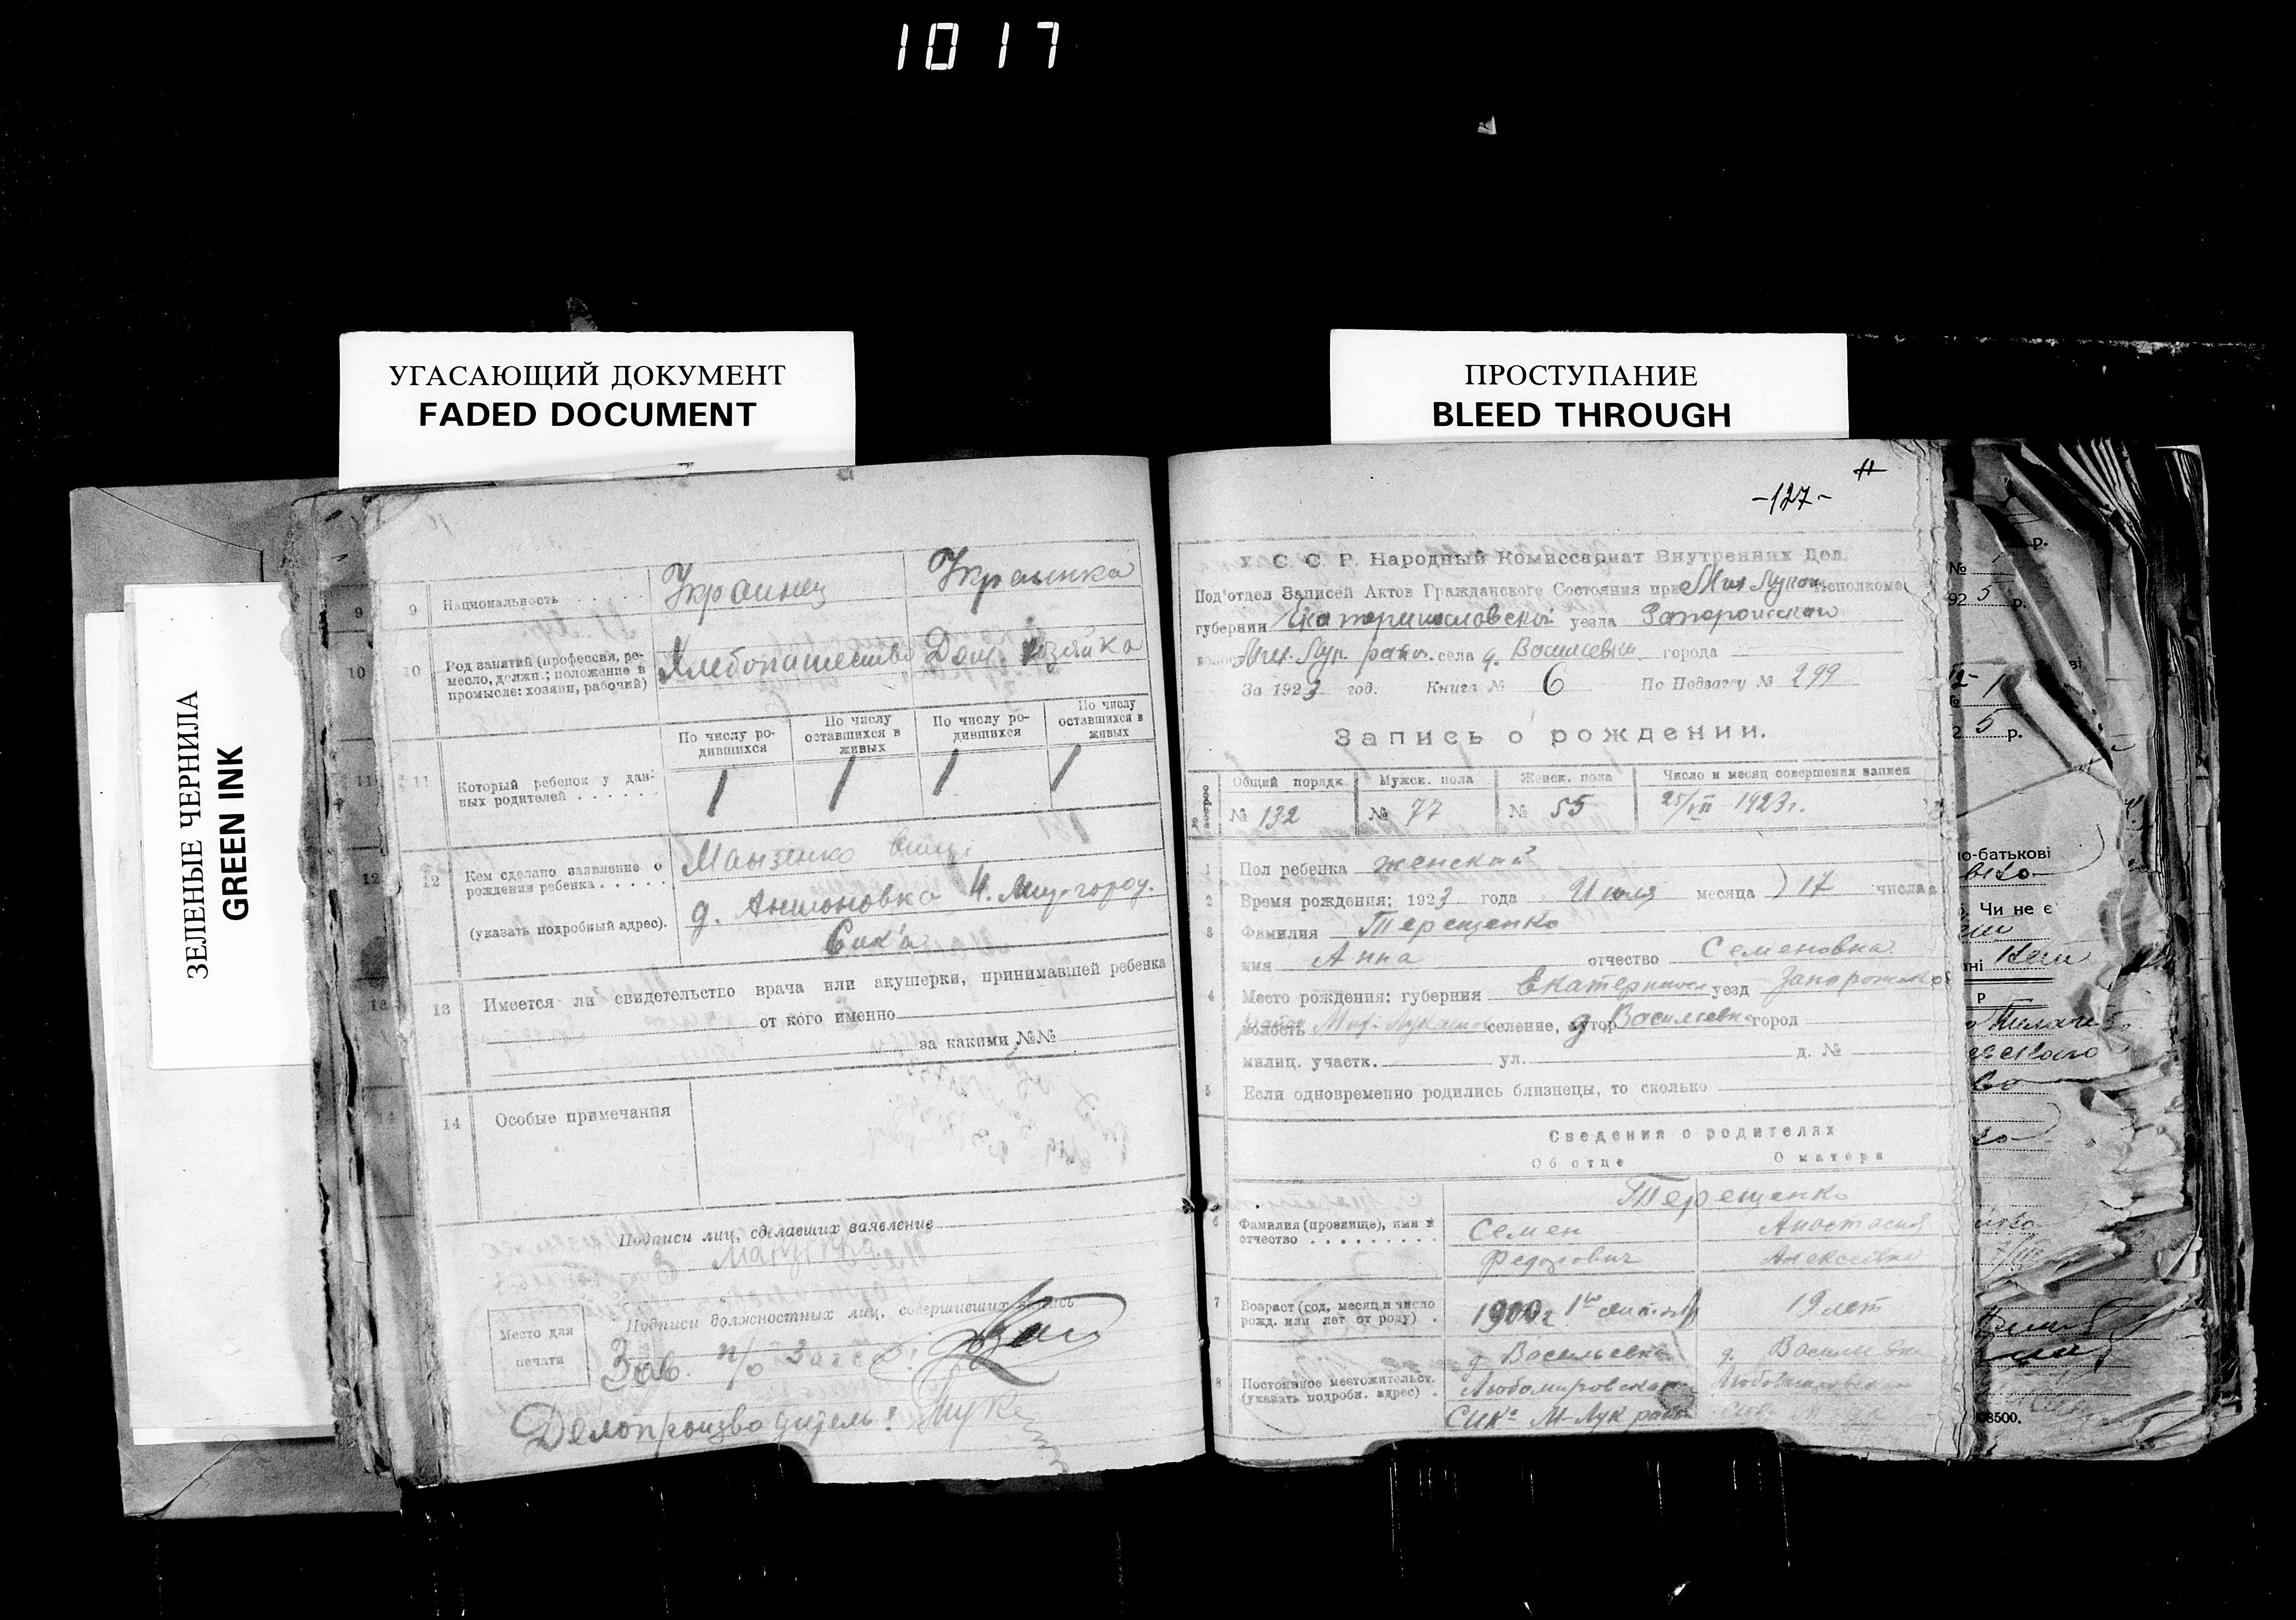 1017
УГАСАЮЩИЙ ДОКУМЕНТ
FADED DOCUMENT
ПРОСТУПАНИЕ
BLEED THROUGH
ЗЕЛЕНЫЕ ЧЕРНИЛА
GREEN INK
9 Национальность . . . . . Украинец Украинка
10 Род занятий (профессия, ре-
месло, должн.; положение в
промысле: хозяин, рабочий)
Хлебопашество Дом. хозяйка
По числу ро-
дившихся
По числу
оставшихся в
живых
По числу ро-
дившихся
По числу
оставшихся в
живых
11 Который ребенок у дан-
ных родителей . . . . . . .
1 1 1 1
12 Кем сделано заявление о
рождении ребенка . . . . .
(указать подробный адрес).
д. Антоновка
13 Имеется ли свидетельство врача или акушерки, принимавшей ребенка
от кого именно
за какими №№
14 Особые примечания
Подписи лиц, сделавших заявление
Подписи должностных лиц, совершивших запись
Место для
печати
Зав. п/о Загс
Делопроизводитель:
-127-
11
У. С. С. Р. Народный Комиссариат Внутренних Дел.
Под'отдел Записей Актов Гражданского Состояния при Мих Лукаш исполкоме
губернии Екатеринославской уезда Запорожского
села д. Васильевки города
За 1923 год. Книга № 6 По Подзагсу № 299
Запись о рождении.
Общий порядк. Мужск. пола Женск. пола Число и месяц совершения записи
№ 132 № 77 № 55 25/VII 1923г.
1 Пол ребенка женский
2 Время рождения: 1923 года Июля месяца 17 числа
3 Фамилия Терещенко
имя Анна отчество Семеновна
4 Место рождения: губерния Екатеринос уезд Запорожско
волость селение, хутор д Васильевка город
милиц. участк. ул. д. №
5 Если одновременно родились близнецы, то сколько
Сведения о родителях
Об отце О матери
Терещенко
6 Фамилия (прозвище), имя и
отчество . . . . . . . . .
Семен Анастасия
Федорович Алексеевна
7 Возраст (год, месяц и число
рожд. или лет от роду) .
1900г 19 лет
8 Постоянное местожительст.
(указать подробн. адрес) .
д. Васильевка д. Васильевка
Любомировская
М-Лук район